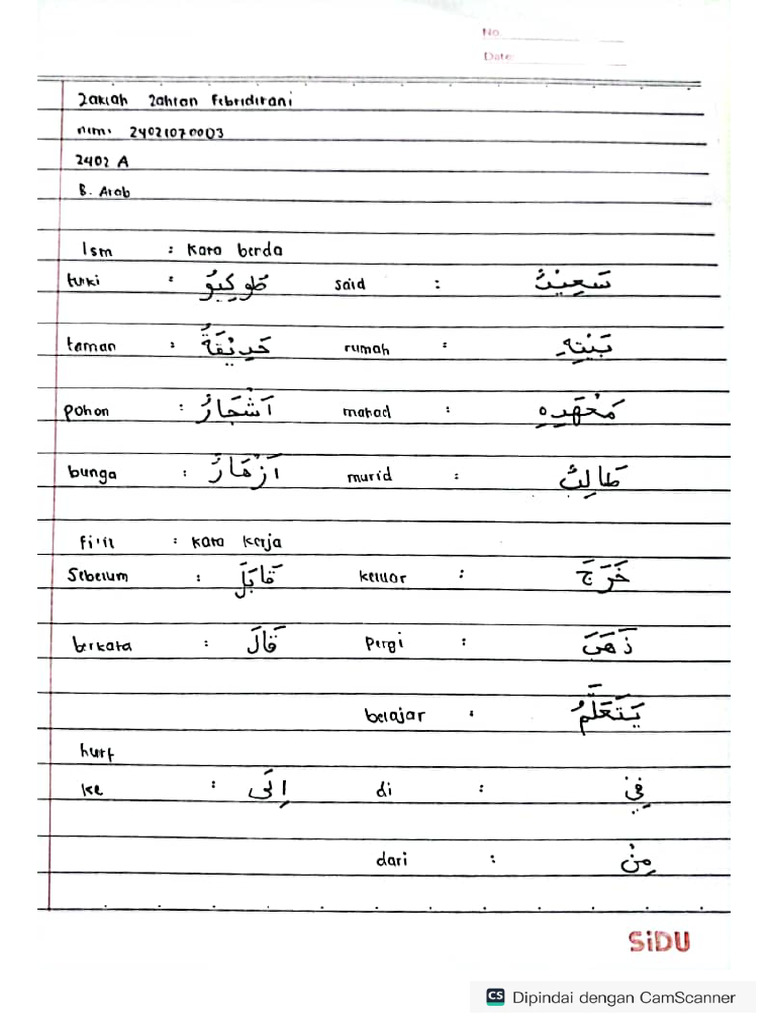 No.
Date:
Zakiah Zahran Febridirani
nim: 24021070003
2402 A
B. Arab
Ism : Kata berda
tuki : طُوكِيُو said : سَعِيْدٌ
taman : حَدِيْقَةٌ rumah : بَيْتِهِ
pohon : اَشْجَارٌ mahad : مَعْهَدِهِ
bunga : اَزْهَارٌ murid : طَالِبٌ
fi'il : kata kerja
Sebelum : قَابَلَ keluar : خَرَجَ
berkata : قَالَ Pergi : ذَهَبَ
belajar : يَتَعَلَّمُ
hurf
ke : اِلَى di : فِيْ
dari : مِنْ
SiDU
CS Dipindai dengan CamScanner